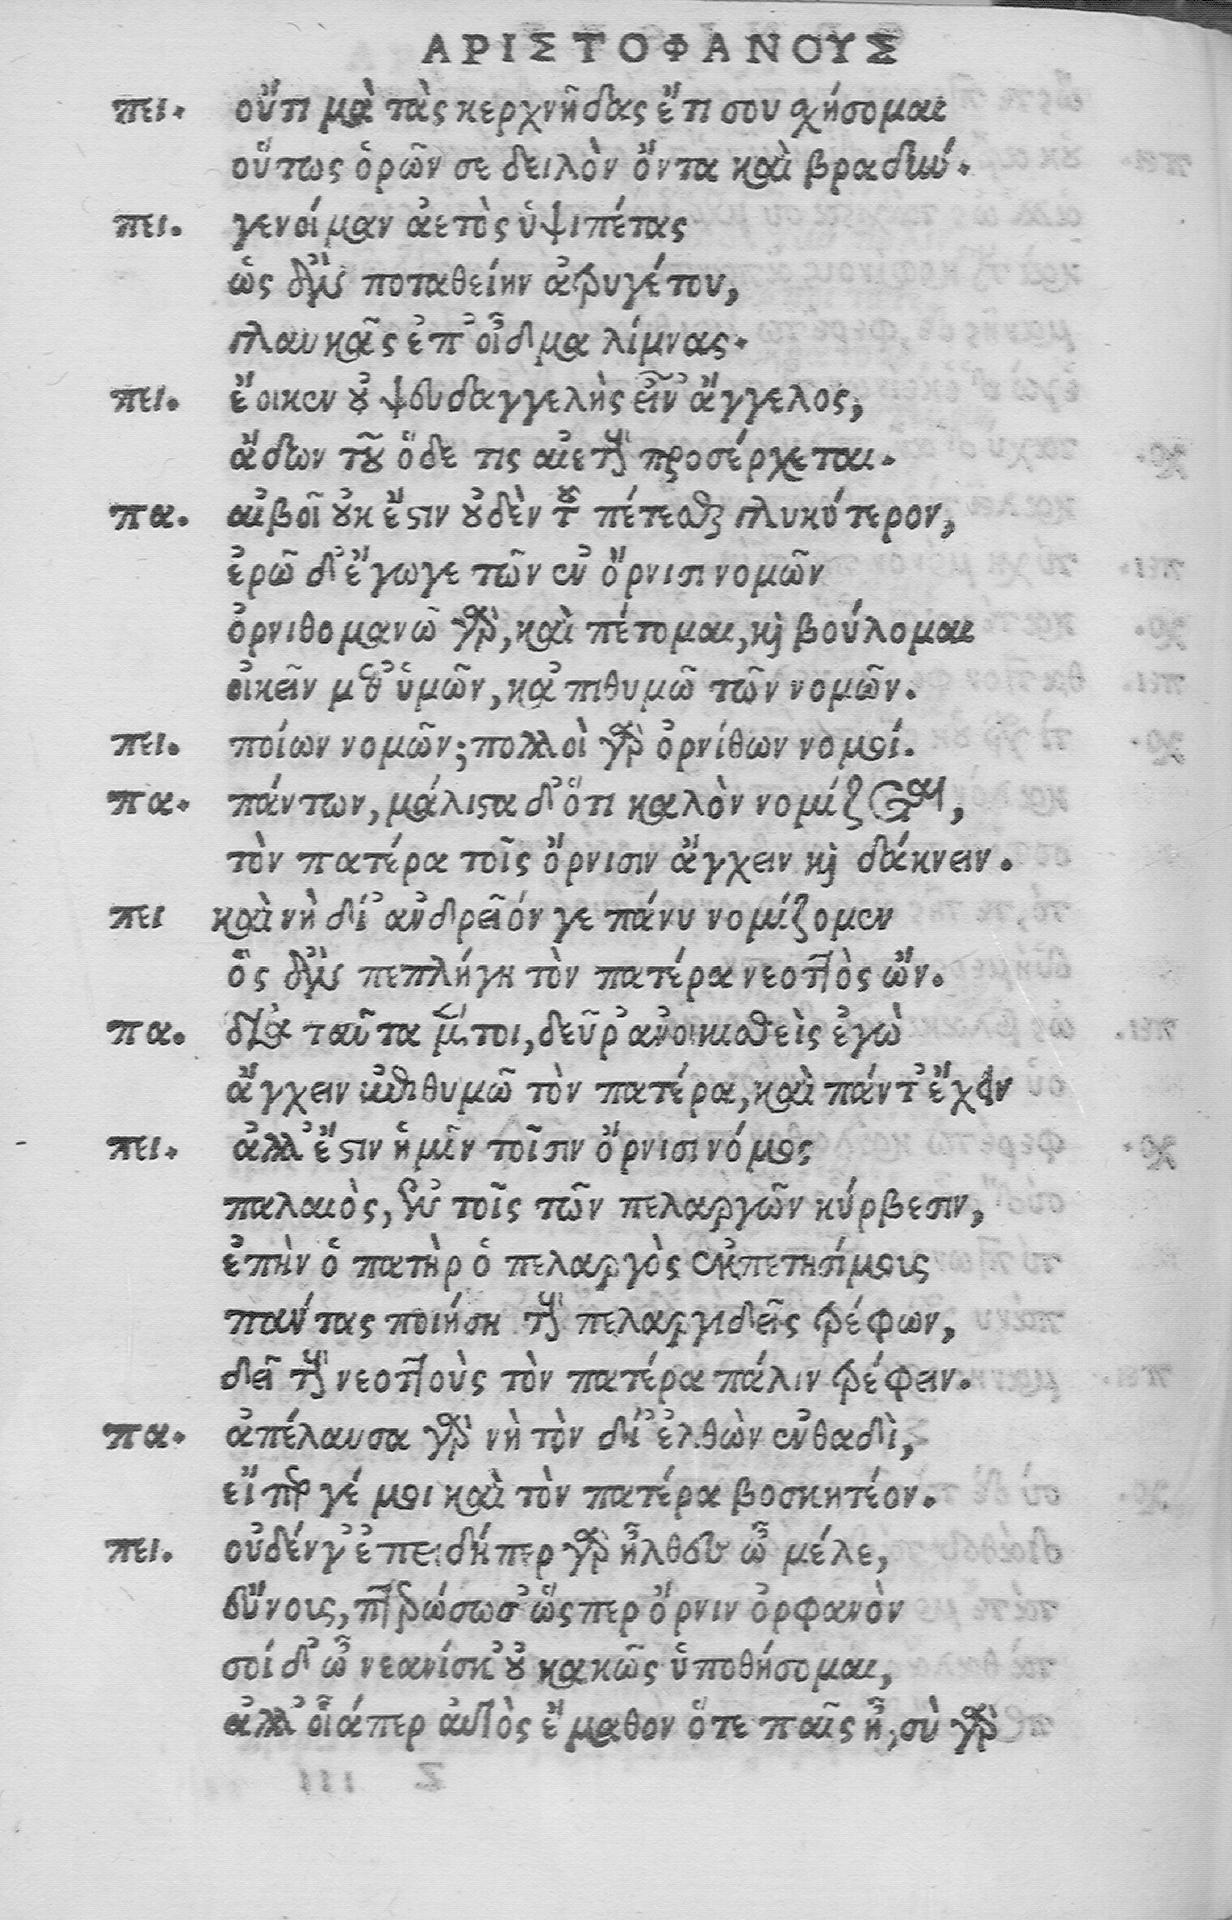 ΑΡΙΣΤΟΦΑΝΟΥΣ
πει. οὔτι μὰ τὰς κερχνῇδας ἔτι σου χήσομαι
οὕτως ὁρῶν σε δειλὸν ὄντα καὶ βραδιώ.
πει. γενοίμαν ἀετὸς ὑψιπέτας
ὡς ἂν ποταθείην ἀτρυγέτου,
γλαυκᾶς ἐπ' οἶδμα λίμνας.
πει. ἔοικεν οὐ ψευδαγγελὴς εἶν' ἄγγελος,
ἄδων γὰρ ὅδε τις αἰετοὺς προσέρχεται.
πα. αἰβοῖ οὐκ ἔστιν οὐδὲν τοῦ πέτεσθαι γλυκύτερον,
ἐρῶ δ' ἔγωγε τῶν ἐν ὄρνισι νομῶν
ὀρνιθομανῶ γὰρ, καὶ πέτομαι, καὶ βούλομαι
οἰκεῖν μεθ' ὑμῶν, κἀπιθυμῶ τῶν νομῶν.
πει. ποίων νομῶν; πολλοὶ γὰρ ὀρνίθων νομοί.
πα. πάντων, μάλιστα δ' ὅτι καλὸν νομίζεται,
τὸν πατέρα τοῖς ὄρνισιν ἄγχειν καὶ δάκνειν.
πει καὶ νὴ δί' ἀνδρεῖόν γε πάνυ νομίζομεν
ὃς ἂν πεπλήγῃ τὸν πατέρα νεοττὸς ὤν.
πα. διὰ ταῦτα μέντοι, δεῦρ' ἀνοικισθεὶς ἐγὼ
ἄγχειν ἐπιθυμῶ τὸν πατέρα, καὶ πάντ' ἔχειν
πει. ἀλλ' ἔστιν ἡμῖν τοῖσιν ὄρνισι νόμος
παλαιὸς, ἐν τοῖς τῶν πελαργῶν κύρβεσιν,
ἐπὴν ὁ πατὴρ ὁ πελαργὸς ἐκπετησίμοις
πάντας ποιήσῃ τοὺς πελαργιδεῖς τρέφων,
δεῖ τοὺς νεοττοὺς τὸν πατέρα πάλιν τρέφειν.
πα. ἀπέλαυσα γὰρ νὴ τὸν δί' ἐλθὼν ἐνθαδὶ,
εἴπερ γέ μοι καὶ τὸν πατέρα βοσκητέον.
πει. οὐδέν γ' ἐπειδήπερ γὰρ ἦλθες ὦ μέλε,
εὔνους, πτερώσω σ' ὥσπερ ὄρνιν ὀρφανὸν
σοί δ' ὦ νεανίσκ' οὐ κακῶς ὑποθήσομαι,
ἀλλ' οἷάπερ αὐτὸς ἔμαθον ὅτε παῖς ἦ, σὺ γὰρ